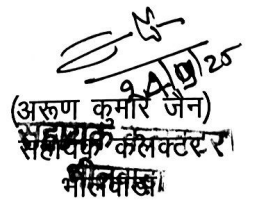 24/9/25
(अरूण कुमार जैन)
सहायक कलक्टर
भीलवाड़ा